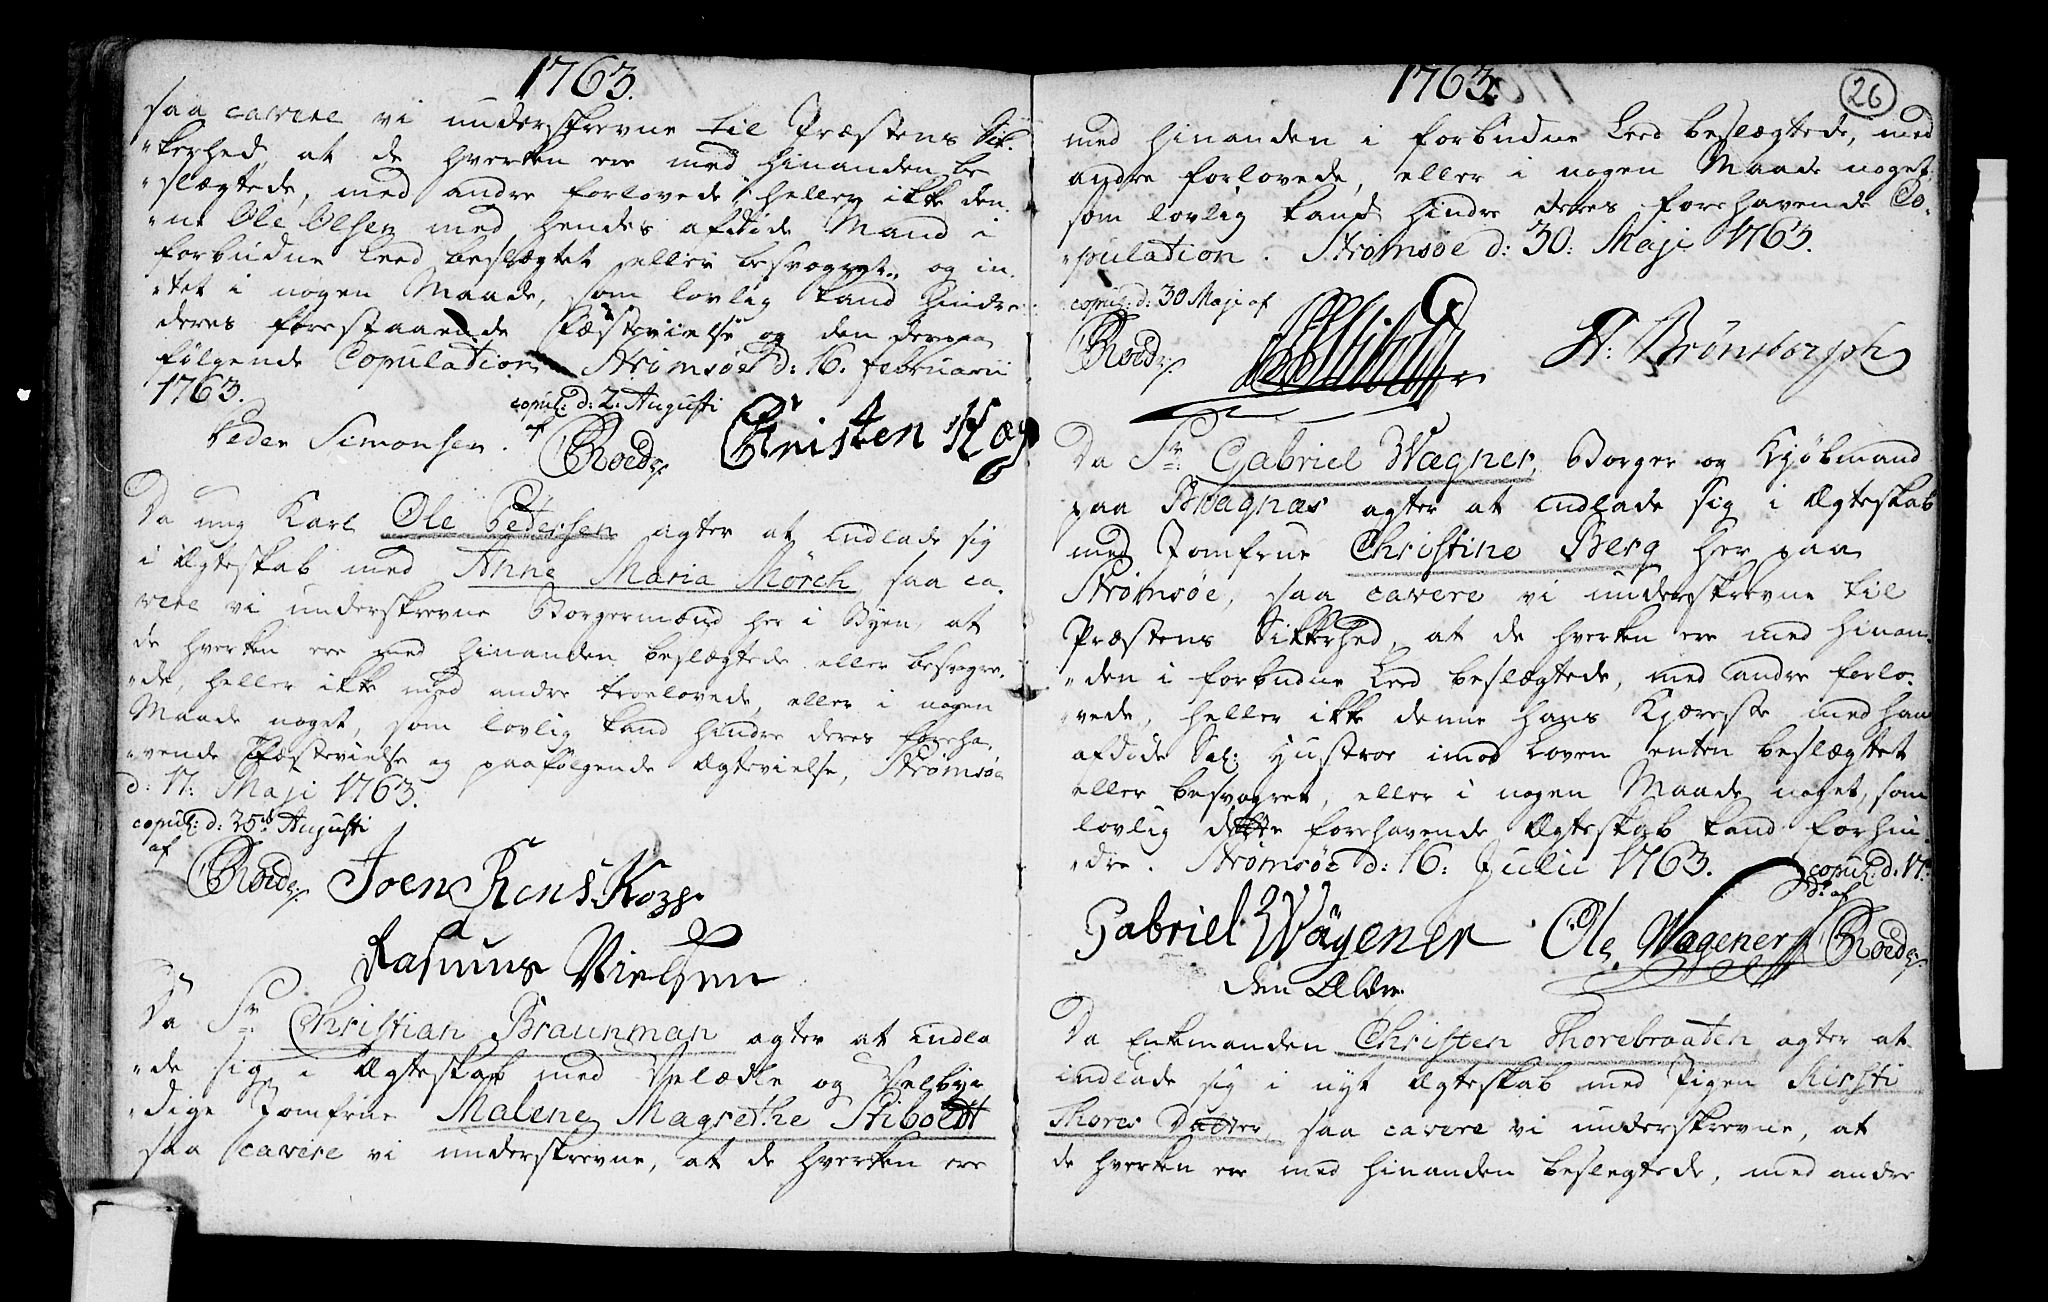 1763.
saa cavere vi underskrevne til Præstens Sik-
"kerhed, at de hverken ere med hinanden be
"slægtede, med andre forlovede, heller ikke den,
"ne Ole Olsen med hendes afdøde Mand i
forbudne Leed beslægtet eller besvogret, og in,
"tet i nogen Maade, som lovlig kand hindre
deres forestaaende Fæstevielse og den derpaa
følgende Copulation Strømsøe d: 16. Februarii
1763.
copul: d: 2. Augusti
af
Peder Simonsen.
CRoed
Christen
Da ung Karl Ole Pedersen agter at indlade sig
i Ægteskab med Anne Maria Mörch, saa ca,
vere vi underskrevne Borgermænd her i Byen, at
de hverken ere med hinanden beslægtede eller besvogre,
"de, heller ikke med andre troelovede, eller i nogen
Maade noget, som lovlig kand hindre deres foreha,
"vende Fæstevielse og paafølgende Ægtevielse, Strømsøe
d: 17: Maji 1763.
copul: d: 25de Augusti
af
CRoed
Joen Rens
Rasmus Nielsen
Da Sr: Christian Braunman agter at indla
"de sig i Ægteskab med Velædle og Velbyr
"dige Jomfrue Malene Magrethe Stiboldt
saa cavere vi underskrevne, at de hverken ere
1763.
26
med hinanden i forbudne Leed beslægtede, med
andre forlovede, eller i nogen Maade noget,
som lovlig kand hindre deres forehavende Co,
"pulation. Strømsøe d: 30: Maji 1763.
copul: d: 30 Maji af
CRoed
Stiboldt
H: Brønstorph
Da Sr: Gabriel Wægner, Borger og Kjøbmand
paa Bragnæs agter at indlade sig i Ægteskab
med Jomfrue Christine Berg her paa
Strømsøe, saa cavere vi underskrevne til
Præstens Sikkerhed, at de hverken ere med hinan,
"den i forbudne Leed beslægtede, med andre forlo,
"vede, heller ikke denne hans Kjæreste med han
afdøde Sal: Hustroe imod Loven enten beslægtet
eller besvogret, eller i nogen Maade noget, som
lovlig dette forehavende Ægteskab kand forhin
"dre. Strømsøe d: 16: Julii 1763.
copul: d: 17.
d: af
Gabriel Wägener
Ole Wægener
CRoed
den Ældre
Da Enkmanden Christen Thorebraaten agter at
indlade sig i nyt Ægteskab med Pigen Kirsti
Thores Datter, saa cavere vi underskrevne, at
de hverken ere med hinanden beslegtede, med andre